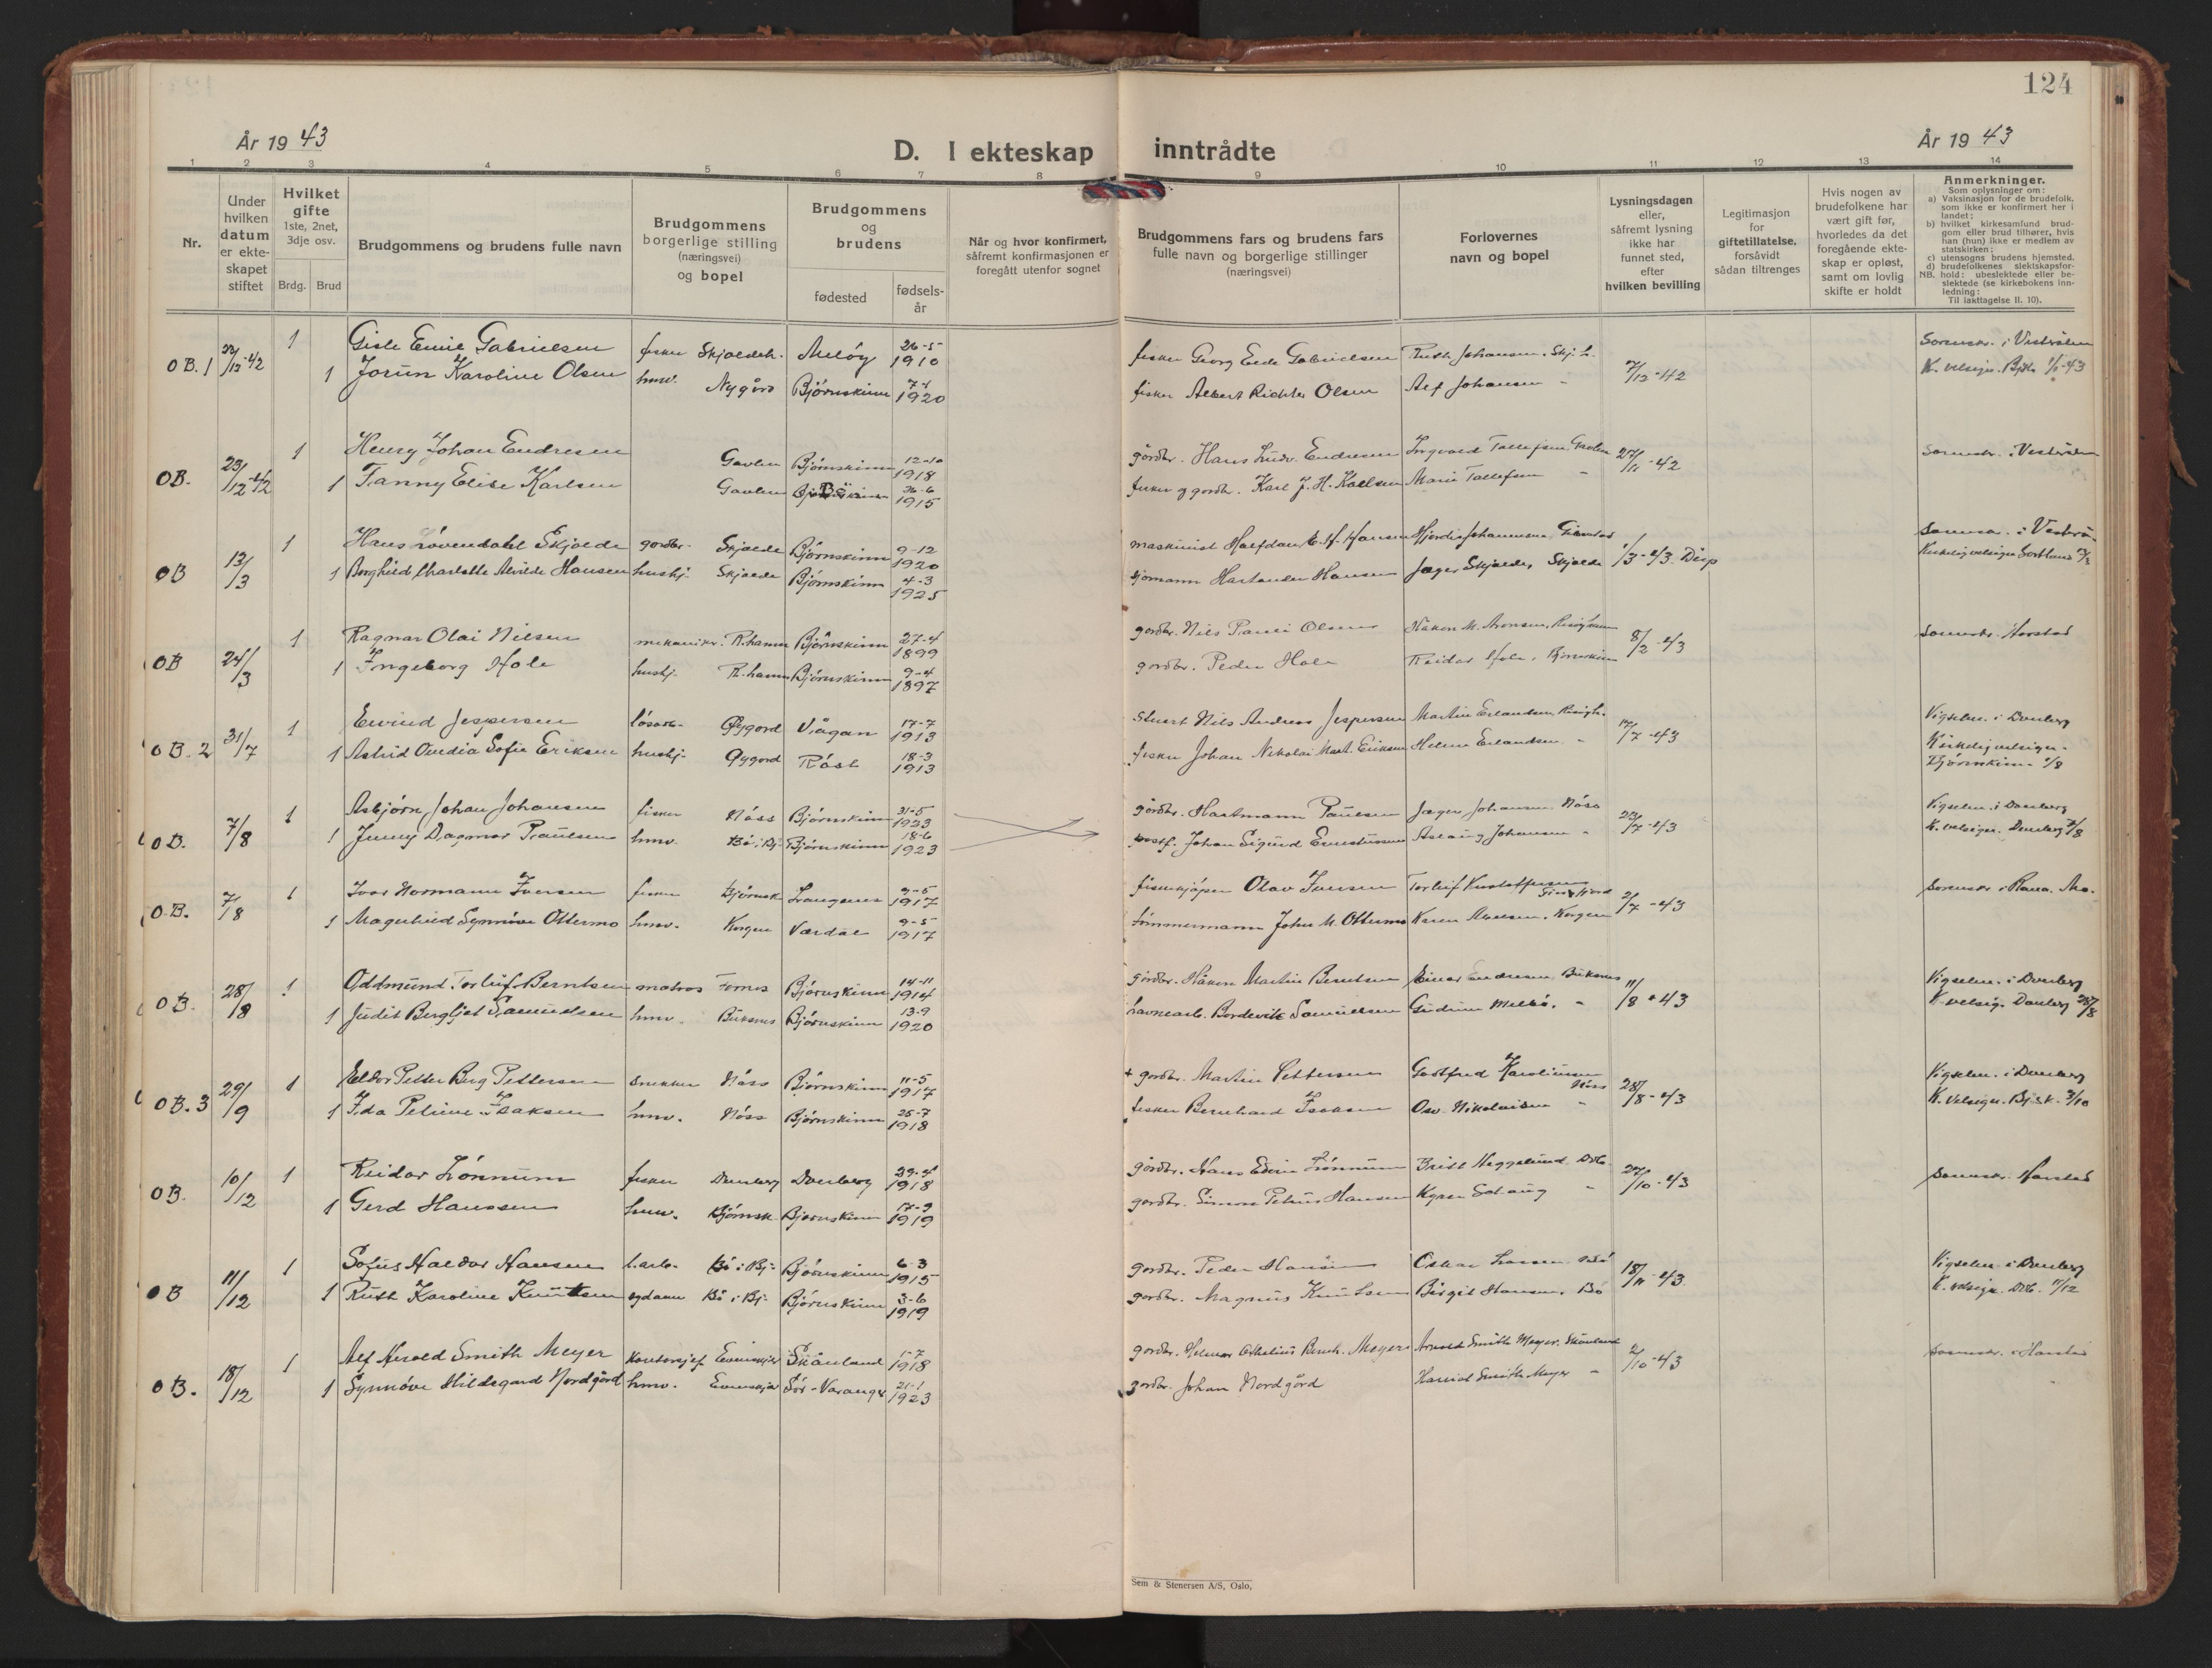 124
År 1943
D. I ekteskap inntrådte
År 1943
1 2 3 4 5 6 7 8 9 10 11 12 13 14
Nr.
Under hvilken datum er ekte-skapet stiftet
Hvilket gifte 1ste, 2net, 3dje osv.
Brdg. Brud
Brudgommens og brudens fulle navn
Brudgommens borgerlige stilling (næringsvei) og bopel
Brudgommens og brudens
fødested
fødsels-år
Når og hvor konfirmert, såfremt konfirmasjonen er foregått utenfor sognet
Brudgommens fars og brudens fars fulle navn og borgerlige stillinger (næringsvei)
Forlovernes navn og bopel
Lysningsdagen eller, såfremt lysning ikke har funnet sted, efter hvilken bevilling
Legitimasjon for giftetillatelse, forsåvidt sådan tiltrenges
Hvis nogen av brudefolkene har vært gift før, hvorledes da det foregående ekte-skap er opløst, samt om lovlig skifte er holdt
Anmerkninger.
Som oplysninger om:
a) Vaksinasjon for de brudefolk, som ikke er konfirmert her i landet;
b) hvilket kirkesamfund brud-gom eller brud tilhører, hvis han (hun) ikke er medlem av statskirken;
c) utensogns brudens hjemsted.
d) brudefolkenes slektskapsfor-
NB. hold: ubeslektede eller be-slektede (se kirkebokens inn-ledning:
Til iakttagelse II. 10).
OB. 1 22/12-42 1 Gisle Emil Gabrielsen fisker Skjoldeh. Meløy 26-5 1910 fisker Georg Gabrielsen Ruth Johansen, Skj.h. 7/12-42 Sorenskr. i Vesterålen
1 Jorun Karoline Olsen hmv. Nygård Bjørnskinn 7-1 1920 fisker Albert Richter Olsen Alf Johansen - K. velsign. Bjsk. 1/1-43
OB. 23/12-42 1 Henry Johan Endresen Gavlen Bjørnskinn 12-10 1918 gårdbr. Hans Ludv. Endresen Ingvald Tollefsen Gavlen 27/11-42 Sorenskr. i Vesterålen
1 Fanny Elise Karlsen Gavlen Bø 1915 fisker og gårdbr. Karl J. H. Karlsen Marie Tollefsen -
OB 13/3 1 Hans Løvendahl Skjolde gårdbr. Skjolde Bjørnskinn 9-12 1920 maskinist Halfdan E. H. Hansen Hjørdis Johannesen 1/3-43. Disp Sorenskr. i Vesterå.
1 Borghild Charlotte Alvilde Hansen hushj. Skjolde Bjørnskinn 4-3 1925 sjømann Hartander Hansen Jæger Skjolde, Skjolde Kirkelig velsign. Sortland 13/3
OB 24/3 1 Ragnar Olai Nilsen mekaniker. R.hamn Bjørnskinn 27-4 1899 gårdbr. Nils Pauli Olsen Håkon M. Aronsen, Risøyhamn 8/2-43 Sorenskr. Harstad
1 Ingeborg Hole hushj. R.hamn Bjørnskinn 9-4 1897 gårdbr. Peder Hole Reidar Hole, Bjørnskinn
OB. 2 31/7 1 Eivind Jespersen løsarb. Øygord Vågan 17-7 1913 Stuert Nils Andreas Jespersen Martin Erlandsen, Risøyh. 17/7-43 Vigselm. i Dverberg
1 Astrid Ovidia Sofie Eriksen hushj. Øygord Røst 18-3 1913 fisker Johan Nikolai Mart. Eriksen Helene Erlandsen - Kirkelig velsign. Bjørnskinn 1/8
OB. 7/8 1 Asbjørn Johan Johansen fisker Nøss Bjørnskinn 31-5 1923 gårdbr. Hartmann Paulsen Jæger Johansen Nøss 23/7-43 Vigselm. i Dverberg
1 Jenny Dagmar Paulsen hmv. Bø i Bj. Bjørnskinn 18-6 1923 postf. Johan Sigurd Ernestussen Aslaug Johansen - K. velsign. Dverberg 7/8
OB. 7/8 1 Ivar Normann Iversen fisker Bjørnsk. Langenes 3-5 1917 fiskekjøper Olav Iversen Torleif Kristoffersen 2/7-43 Sorenskr. i Rana. Mo.
1 Magnhild Synnøve Ottermo hmv. Korgen Værdal 9-5 1917 tømmermann John M. Ottermo Karen Axelsen, Korgen
OB. 28/8 1 Oddmund Torleif Berntsen matros Fornes Bjørnskinn 14-11 1914 gårdbr. Håkon Martin Berntsen Einar Endresen Buksnes 11/8-43 Vigselm. i Dverberg
1 Judit Bergljot Samuelsen hmv. Buksnes Bjørnskinn 13-9 1920 havnearb. Bordevik Samuelsen Gudrun Melbø. - K. velsig. Dverberg 28/8
OB. 3 29/9 1 Eldor Petter Berg Pettersen snekker Nøss Bjørnskinn 11-5 1917 + gårdbr. Martin Pettersen Gottfred Karoliussen Nøss 28/8-43 Vigselm. i Dverberg
1 Ida Petrine Isaksen hmv. Nøss Bjørnskinn 25-7 1918 fisker Bernhard Isaksen Osv. Nikolaisen - K. velsign. Bj.sk. 3/10
OB. 10/12 1 Reidar Lønnum fisker Dverberg Dverberg 29-4 1918 gårdbr. Hans Edvin Lønnum Britt Heggelund Drb. 27/10-43 Sorenskr. Harstad
1 Gerd Hanssen hmv. Bjørnsk. Bjørnskinn 17-9 1919 gårdbr. Simon Petrus Hansen -
OB 11/12 1 Sofus Haldor Hansen l.arb. Bø i Bj. Bjørnskinn 6-3 1915 gårdbr. Peder Hansen Oskar Larsen Bø 18/11-43 Vigselm. i Dverberg
1 Ruth Karoline Knutsen Bø i Bj. Bjørnskinn 3-6 1919 gårdbr. Magnus Knutsen Birgit Hansen, Bø K. velsign. Drb. 11/12
OB. 18/12 1 Alf Herold Smith Meyer kontorsjef Evenskjer Skånland 1-7 1918 gårdbr. Helmer Meyer Arnold Smith Meyer, Skånland 2/10-43 Sorenskr. i Harstad
1 Synnøve Hildegard Nordgård hmv. Evenskjer Sør-Varanger 21-1 1923 gårdbr. Johan Nordgård Harald Smith Meyer -
Sem & Stenersen A/S, Oslo,